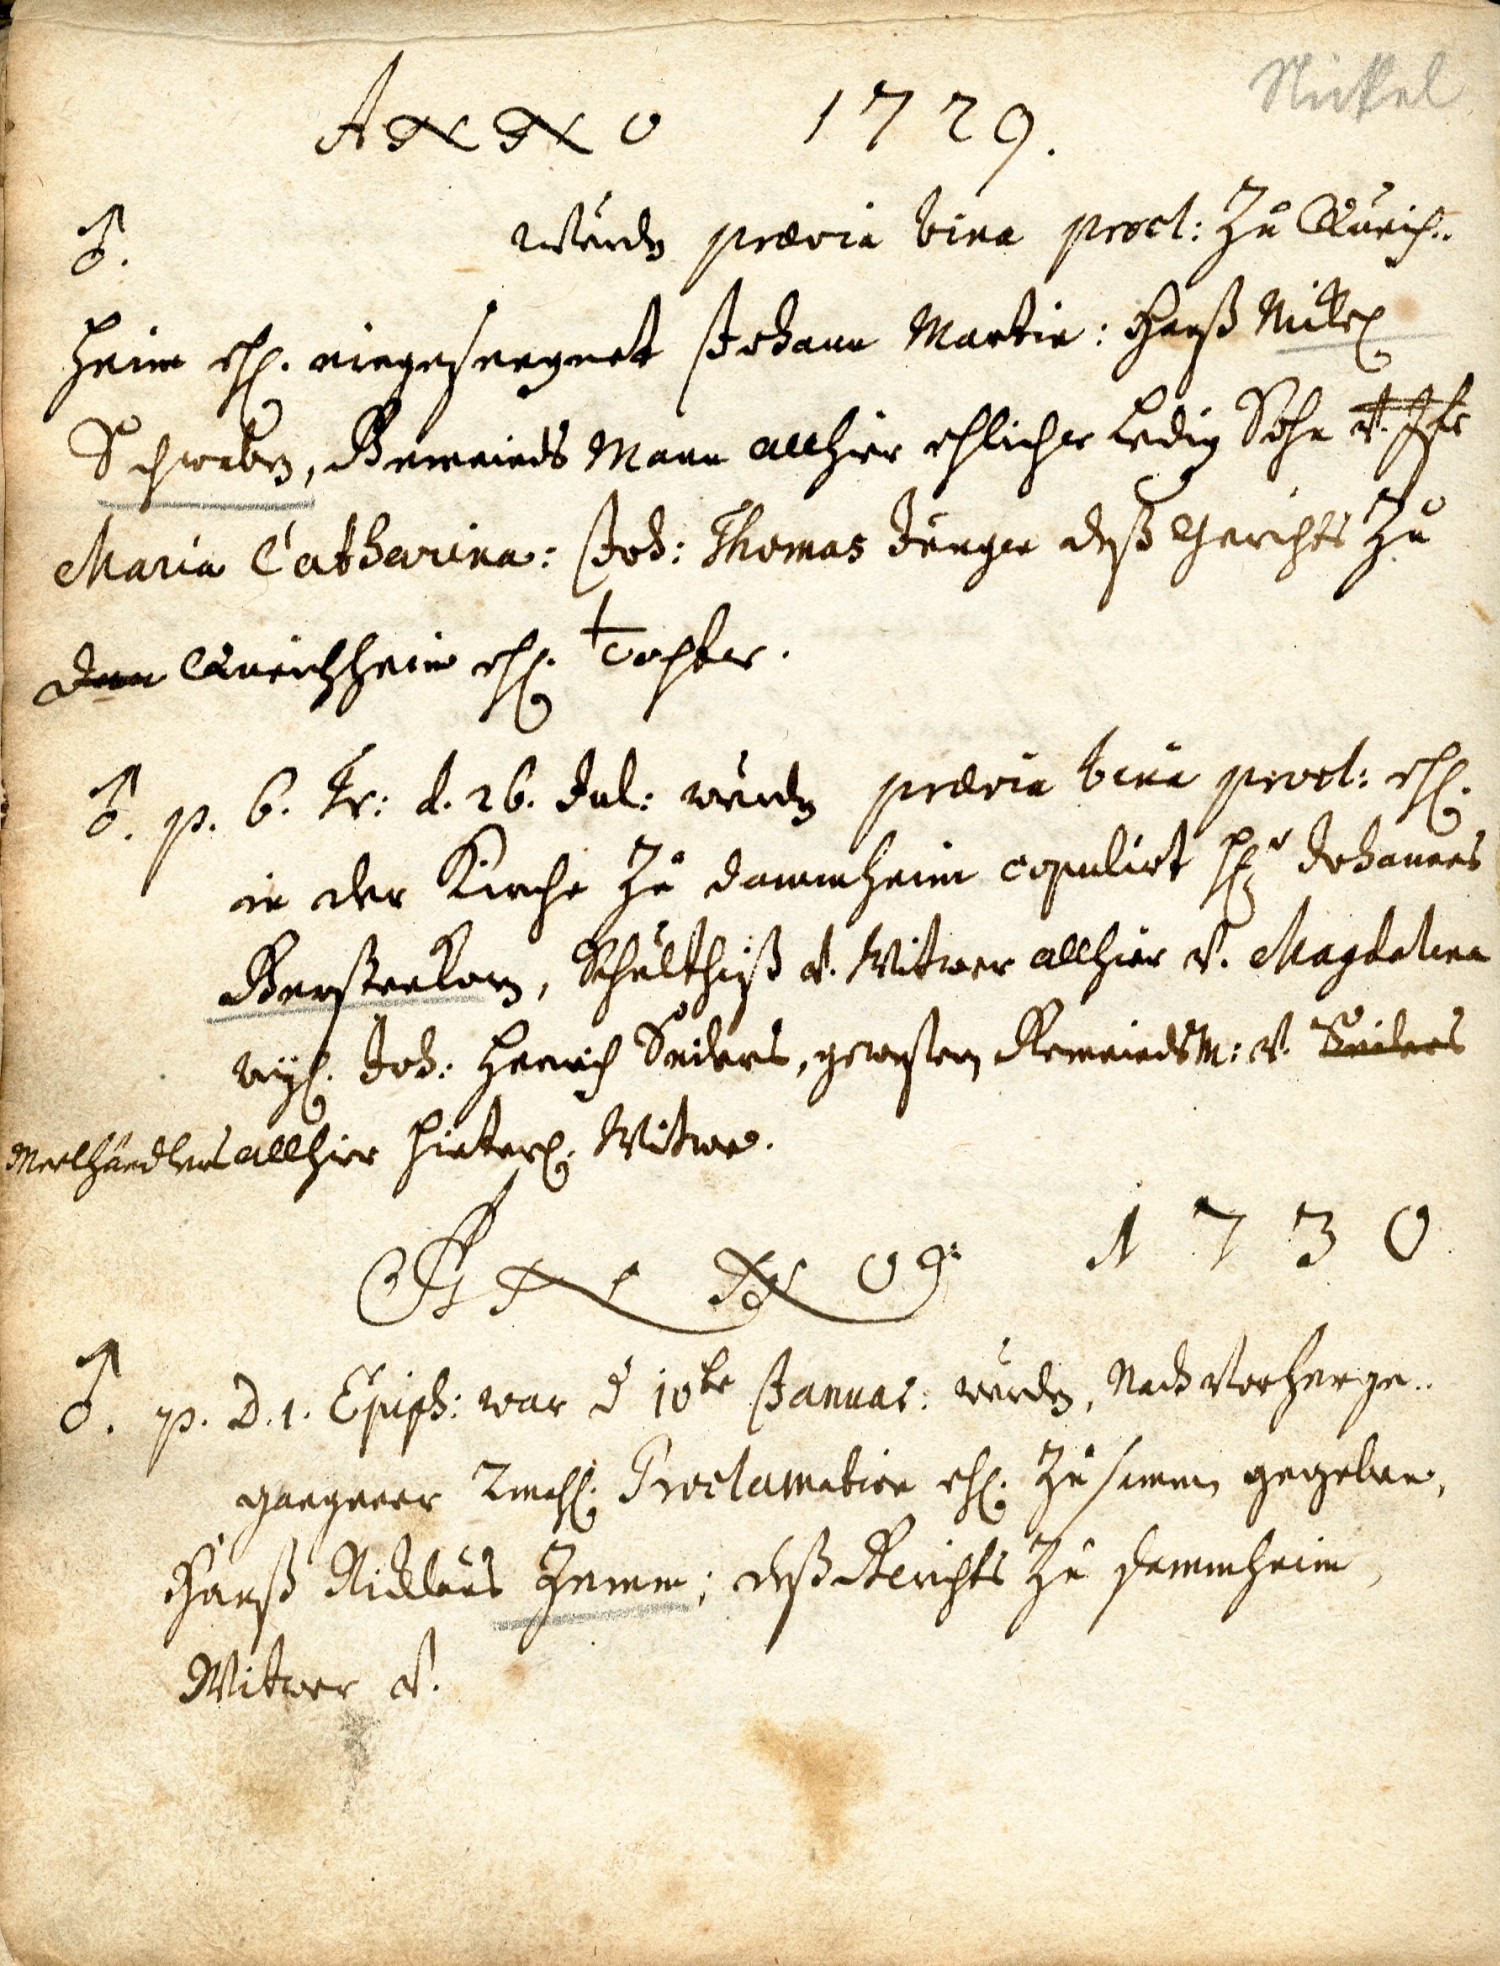 Nickel
ANNO 1729.
♂. wurden præviâ binâ procl: zu Queich-
heim ehl. eingesegnet Johann Martin: Hanß Nikel
Schwaben, Gemeinds Mann allhier ehlicher ledig Sohn u. Jfr
Maria Catharina: Joh: Thomas Junger deß Gerichts zu
Queichheim ehl. Tochter.
♂. p. 6. Tr: d. 26. Jul: wurden præviâ binâ procl: ehl.
in der Kirche zu Dammheim copulirt Johannes
Gerstenkorn, Schultheiß u. Witwer allhier u. Magdalena
weyl. Joh: Henrich Seilers, gewesten Gemeindsm: u. Seilers
Meelhändlers allhier hinterl. Witwe.
ANNO 1730
♂. p. D. 1. Epiph: war d 10te Januar: wurden, nach vorherge-
gangener 2mahl. Proclamation ehl. zusamen gegeben,
Hanß Nicklaus Zumm; deß Gerichts zu Dammheim,
Witwer u.